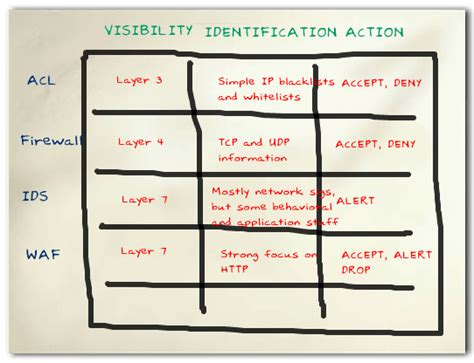 VISIBILITY IDENTIFICATION ACTION
ACL Layer 3 Simple IP blacklists ACCEPT, DENY
and whitelists
Firewall Layer 4 TCP and UDP ACCEPT, DENY
information
IDS Layer 7 Mostly network sigs, ALERT
but some behavioral
and application stuff
WAF Layer 7 Strong focus on ACCEPT, ALERT
HTTP DROP